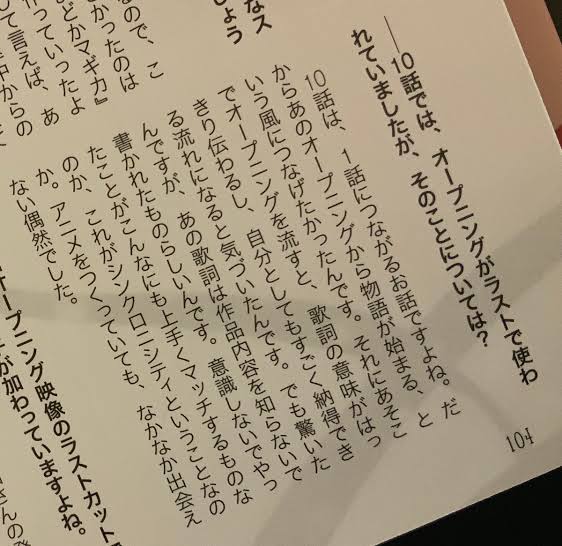 なス
しょう
なので、こ
かったのは
どかマギカ』
っていったよ
して言えば、あ
中からの
――10話では、オープニングがラストで使わ
れていましたが、そのことについては？
10話は、1話につながるお話ですよね。だ
からあのオープニングから物語が始まる、と
いう風につなげたかったんです。それにあそこ
でオープニングを流すと、歌詞の意味がはっ
きり伝わるし、自分としてもすごく納得でき
る流れになると気づいたんです。でも驚いた
んですが、あの歌詞は作品内容を知らないで
書かれたものらしいんです。意識しないでやっ
たことがこんなにも上手くマッチするものな
のか、これがシンクロニシティということなの
か。アニメをつくっていても、なかなか出会え
ない偶然でした。
オープニング映像のラストカット
が加わっていますよね。
さんの
104